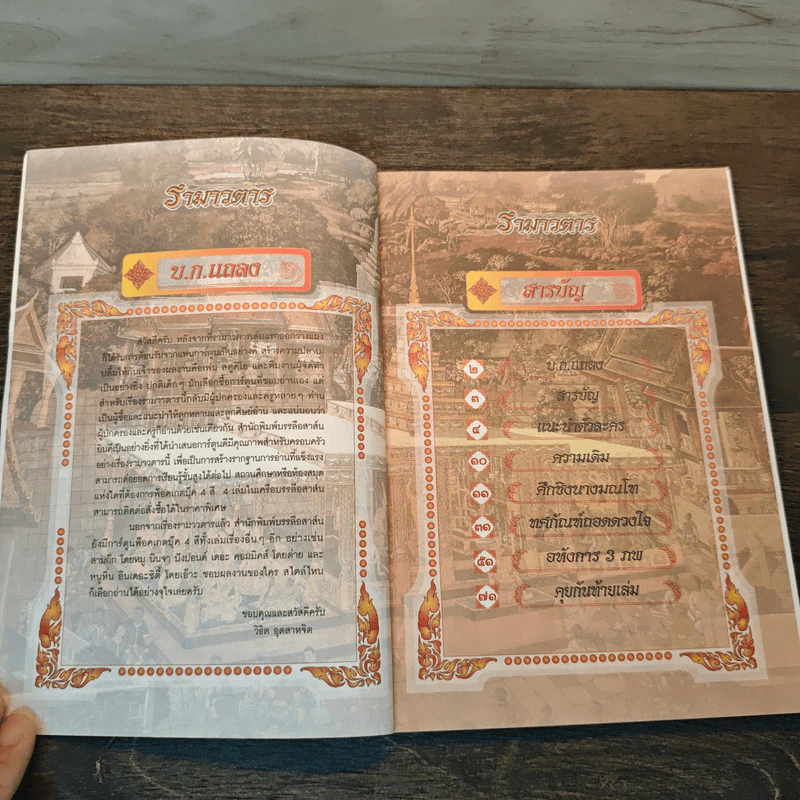 รามาวตาร
บ.ก.แถลง ๒
สวัสดีครับ หลังจากที่รามาวตารเล่มแรกออกวางแผง
ก็ได้รับการต้อนรับจากแฟนการ์ตูนเป็นอย่างดี สร้างความปลาบ
ปลื้มให้กับเจ้าของผลงานคือเฟน สตูดิโอ และทีมงานผู้จัดทำ
เป็นอย่างยิ่ง ปกติเด็กๆ มักเลือกซื้อการ์ตูนที่ชอบอ่านเอง แต่
สำหรับเรื่องรามาวตารนี้กลับมีผู้ปกครองและครูหลายๆ ท่าน
เป็นผู้ซื้อและแนะนำให้ลูกหลานและลูกศิษย์อ่าน และแน่นอนว่า
ผู้ปกครองและครูก็อ่านด้วยเช่นเดียวกัน สำนักพิมพ์บรรลือสาส์น
ยินดีเป็นอย่างยิ่งที่ได้นำเสนอการ์ตูนดีมีคุณภาพสำหรับครอบครัว
อย่างเรื่องรามาวตารนี้ เพื่อเป็นการสร้างรากฐานการอ่านที่แข็งแรง
สามารถต่อยอดการเรียนรู้ขั้นสูงได้ต่อไป สถานศึกษาหรือห้องสมุด
แห่งใดที่ต้องการพ็อคเกตบุ๊ค 4 สี 4 เล่มในเครือบรรลือสาส์น
สามารถติดต่อสั่งซื้อได้ในราคาพิเศษ
นอกจากเรื่องรามาวตารแล้ว สำนักพิมพ์บรรลือสาส์น
ยังมีการ์ตูนพ็อคเกตบุ๊ค 4 สีทั้งเล่มเรื่องอื่นๆ อีก อย่างเช่น
สามก๊ก โดยหมู นินจา ปังปอนด์ เดอะ คอมมิคส์ โดยต่าย และ
หนูหิ่น อินเดอะซิตี้ โดยเอ๊าะ ชอบผลงานของใคร สไตล์ไหน
ก็เลือกอ่านได้อย่างจุใจเลยครับ
ขอบคุณและสวัสดีครับ
วิธิต อุตสาหจิต
รามาวตาร
สารบัญ
๒ บ.ก.แถลง
๓ สารบัญ
๔ แนะนำตัวละคร
๑๐ ความเดิม
๑๑ ศึกชิงนางมณโฑ
๓๑ ทศกัณฑ์ถอดดวงใจ
๕๑ อหังการ 3 ภพ
๗๑ คุยกันท้ายเล่ม